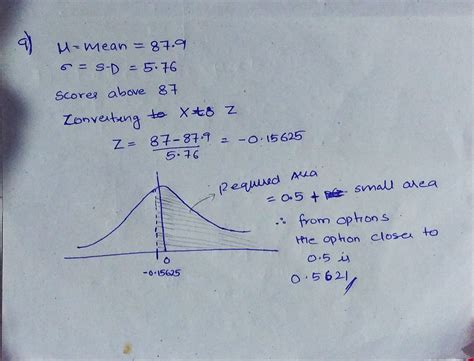 9)
μ = mean = 87.9
σ = S.D = 5.76
Scores above 87
Zonverting to X to Z
Z = 87-87.9 / 5.76 = -0.15625
Required Area
= 0.5 + small area
∴ from options
the option closer to
0.5 is
0.5621
0
-0.15625